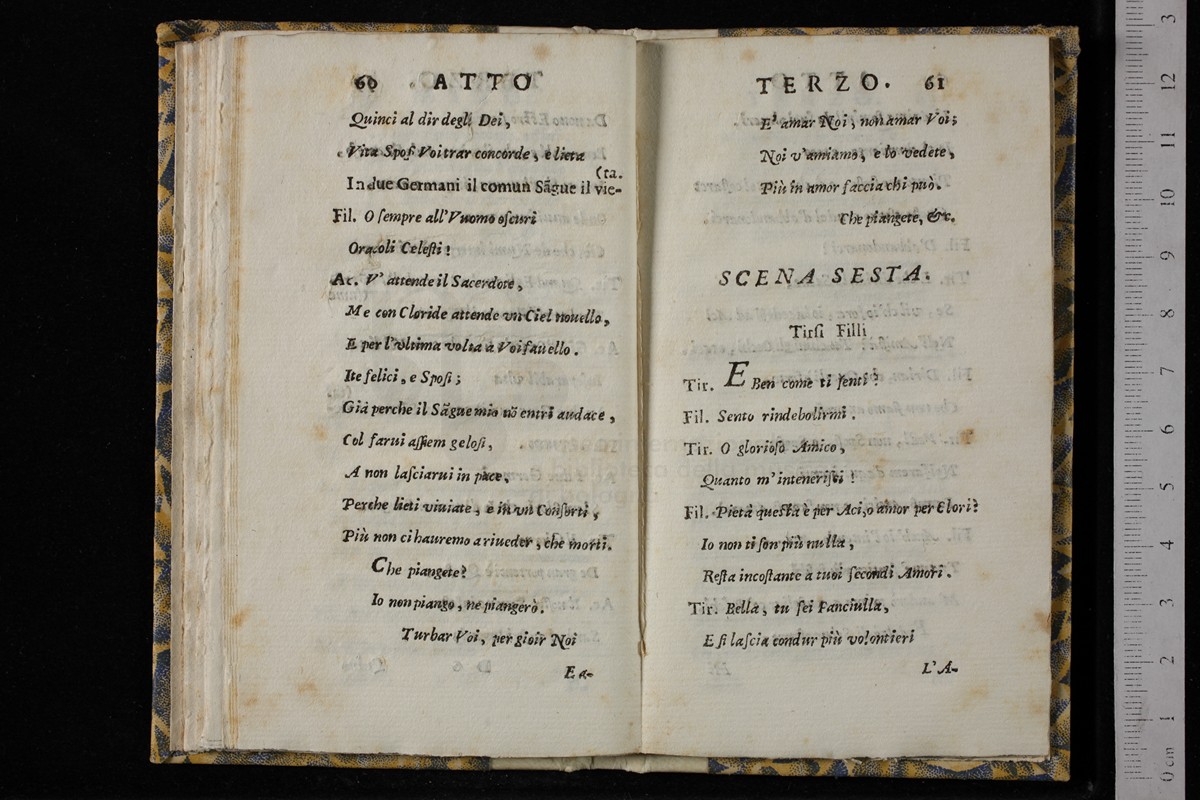 60 ATTO
Quinci al dir degli Dei,
Vita Sposi Voi trar concorde, e lieta
(ta.
In due Germani il comun Sãgue il vie-
Fil. O sempre all'Vuomo oscuri
Oracoli Celesti!
Ac. V' attende il Sacerdote,
Me con Cloride attende vn Ciel nouello,
E per l'vltima volta à Voi fauello.
Ite felici, e Sposi;
Già perche il Sãgue mio nõ entri audace,
Col farui assiem gelosi,
A non lasciarui in pace,
Perche lieti viuiate, e in vn Consorti,
Più non ci hauremo a riueder, che morti.
Che piangete?
Io non piango, ne piangerò.
Turbar Voi, per gioir Noi
E a-
TERZO. 61
E' amar Noi, non amar Voi;
Noi v'amiamo, e lo vedete,
Più in amor faccia chi può.
Che piangete, &c.
SCENA SESTA.
Tirsi Filli
Tir. E Ben come ti senti?
Fil. Sento rindebolirmi.
Tir. O glorioso Amico,
Quanto m'inteneristi!
Fil. Pietà questa è per Aci, o amor per Clori?
Io non ti son più nulla,
Resta incostante a tuoi secondi Amori.
Tir. Bella, tu sei Fanciulla,
E si lascia condur più volontieri
L'A-
0 cm 1 2 3 4 5 6 7 8 9 10 11 12 3